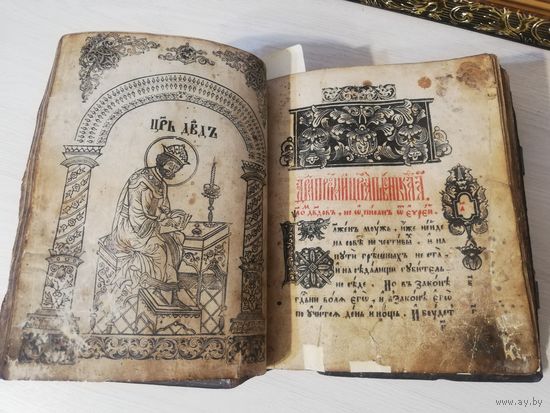 ЦР҃Ь ДВ҃ДЪ
дв҃довъ, не ѿ еѵреи
Блженъ моужъ, иже неиде
на совѣ нечестивы, и на
пути грѣшныхъ не ста
и на сѣдалищи губитель
не сѣде. Но въ законѣ
гдни волѧ его, и взаконѣ его
поучитсѧ день и нощь. И боудет
www.ay.by